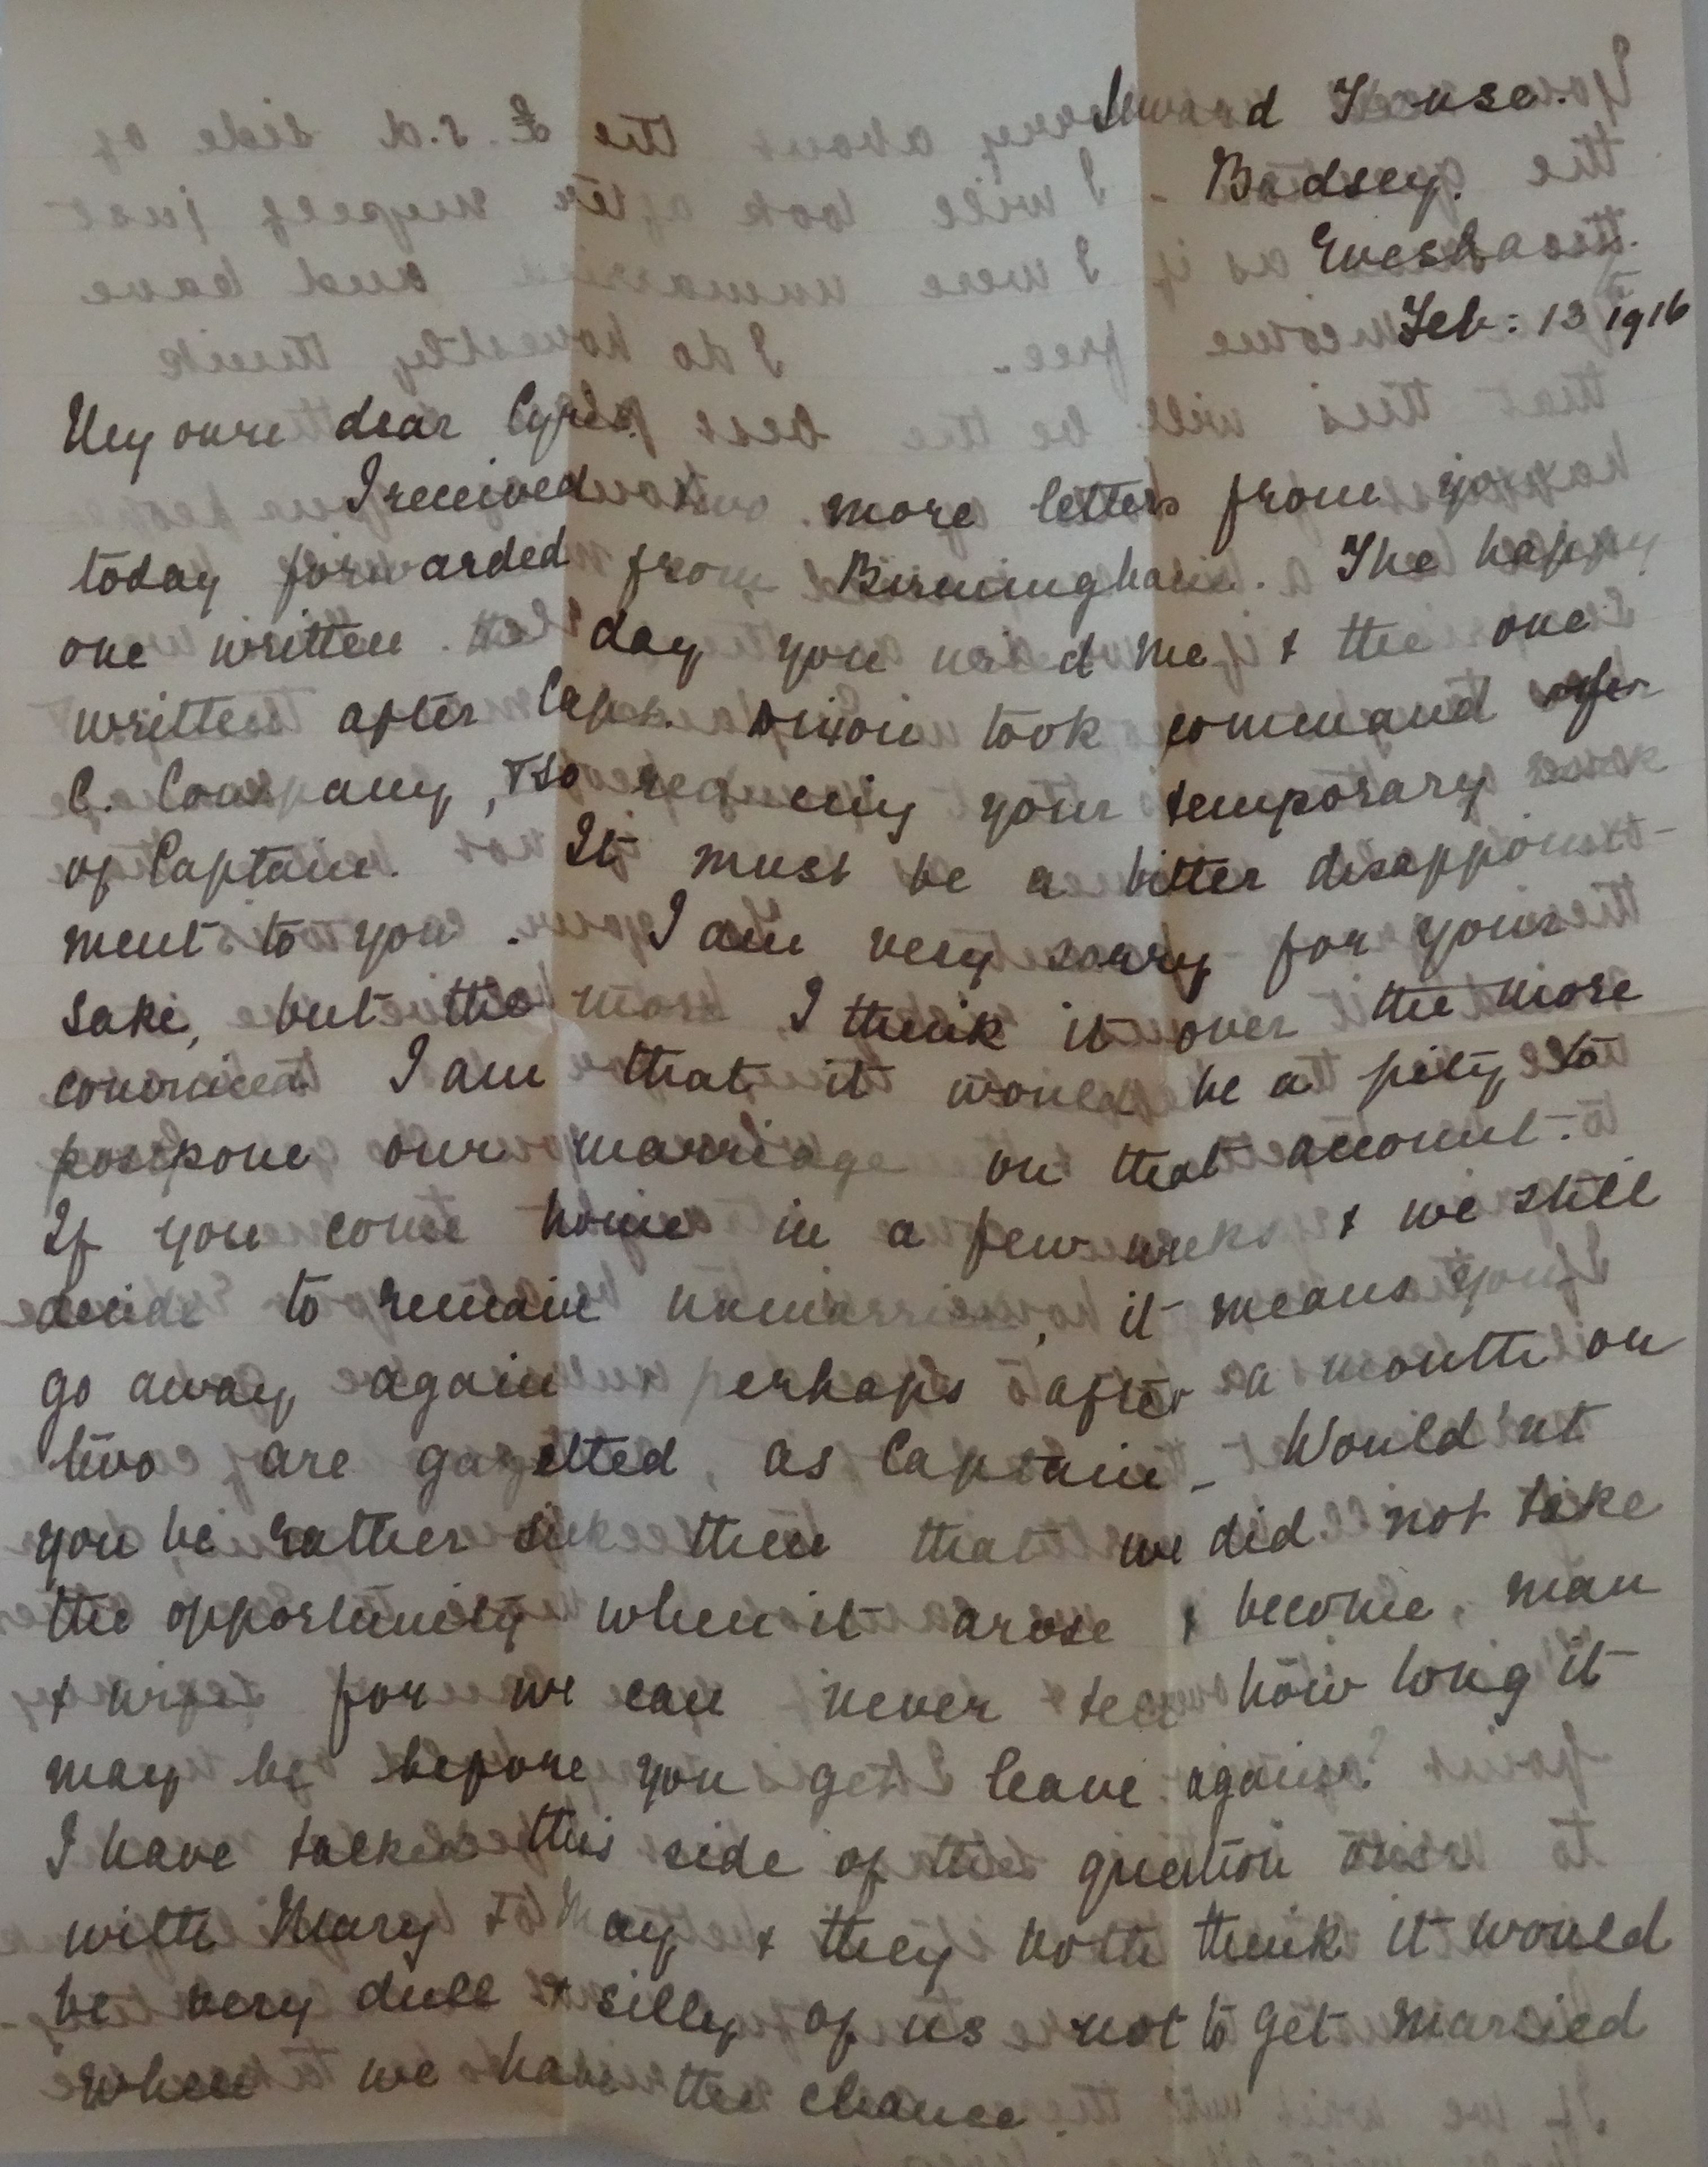 Seward House.
Badsey.
Evesham.
Feb: 13th 1916
My own dear Cyril.
I received 2 more letters from you
today forwarded from Birmingham. The happy
one written the day you wired me & the one
written after Capt. Dixon took command of
C. Company, so your temporary rank
of Captain. It must be a bitter disappoint-
ment to you. I am very sorry for your
sake, but the more I think it over the more
convinced I am that it would be a pity to
postpone our marriage on that account.
If you come home in a few weeks & we still
decide to remain unmarried, it means you
go away again & perhaps after a month or
two are gazetted, as Captain - Would'nt
you be rather sick then that we did not take
the opportunity when it arose & become, man
& wife for we can never tell how long it
may be before you get leave again?
I have talked this side of the question over
with Mary & May & they both think it would
be very dull & silly of us not to get married
when we have the chance.